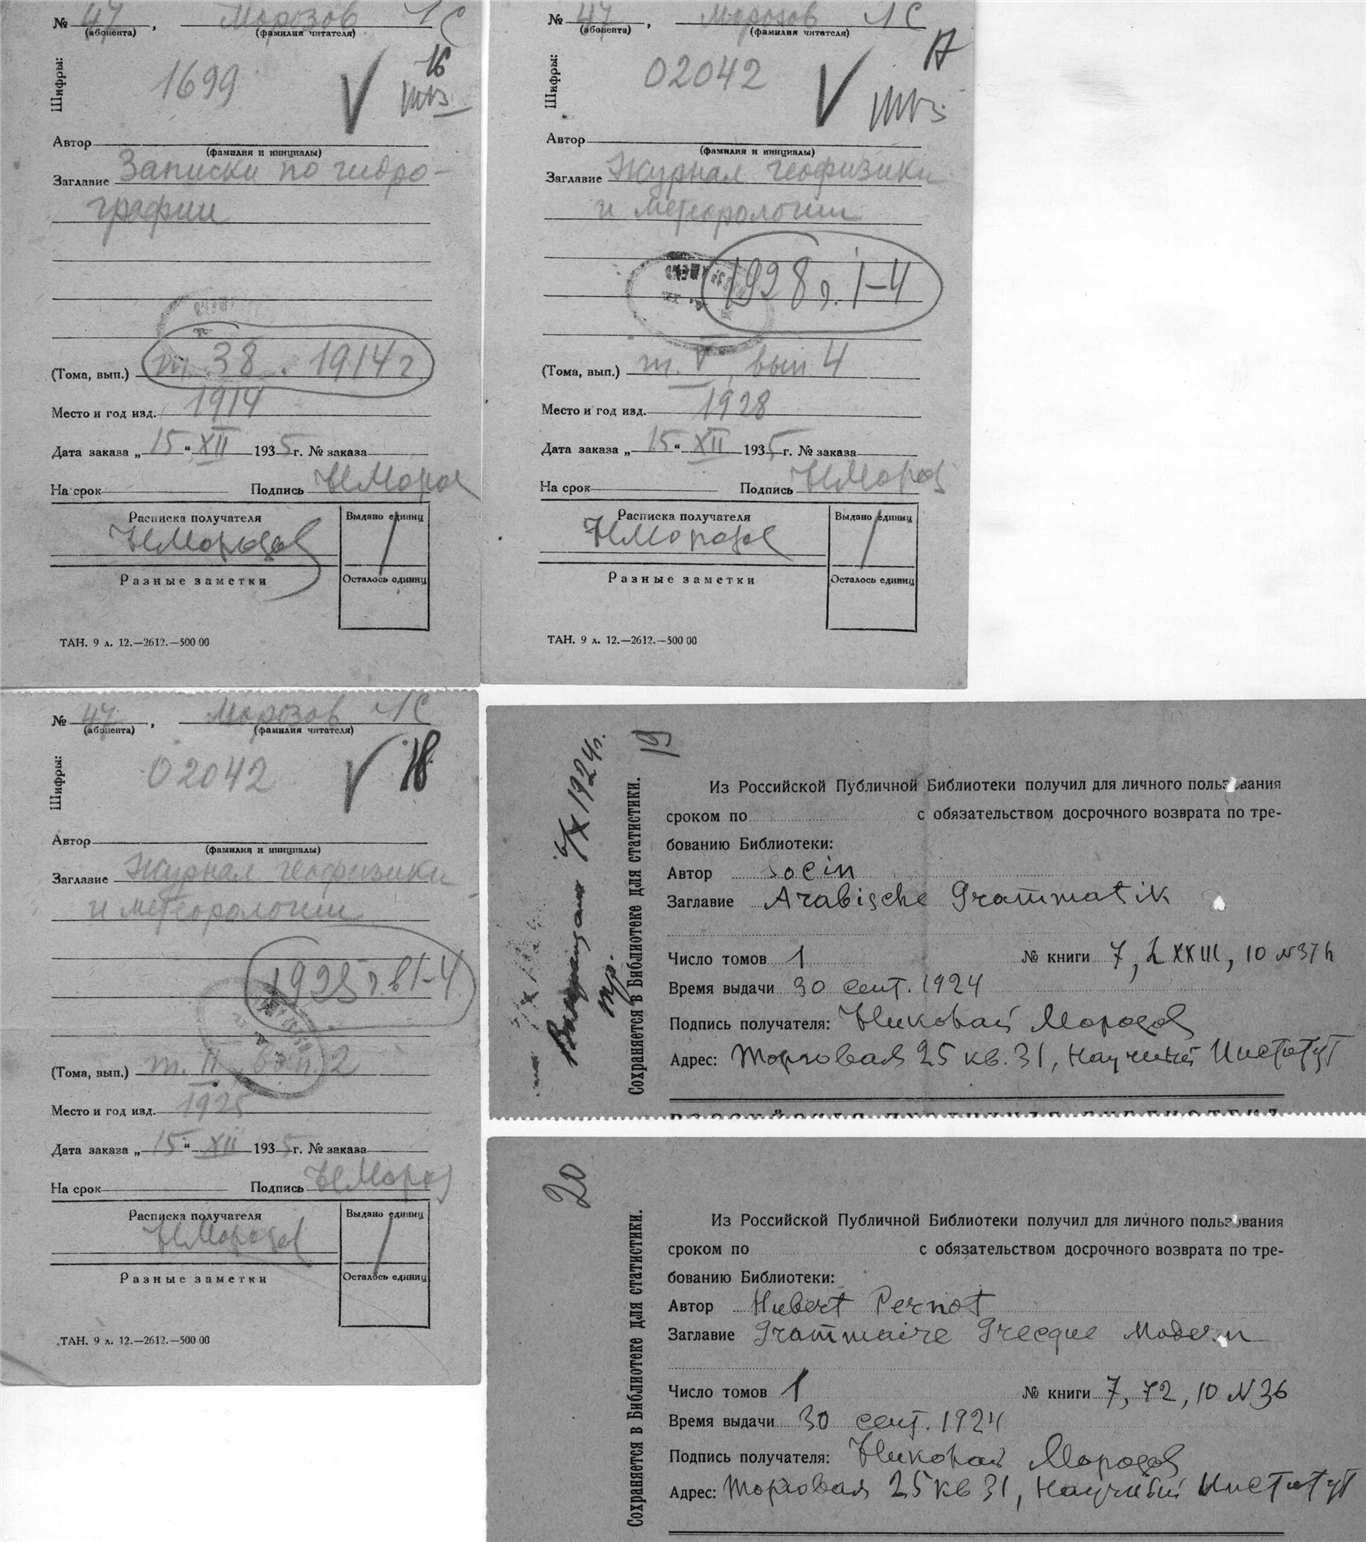 № 47, Морозов
(абонента) (фамилия читателя)
16
Шифры:
1699
Автор
(фамилия и инициалы)
Заглавие Записки по гидро-
графии
(Тома, вып.) т. 38 . 1914 г
Место и год изд. 1914
Дата заказа „15“ XII 1935 г. № заказа
На срок Подпись НМороз
Расписка получателя Выдано единиц
НМорозов 1
Разные заметки Осталось единиц
ТАН. 9 л. 12.—2612.—500 00
№ 47, Морозов
(абонента) (фамилия читателя)
17
Шифры:
02042
Автор
(фамилия и инициалы)
Заглавие Журнал геофизики
и метеорологии
1928 г. 1-4
(Тома, вып.) т. V, вып 4
Место и год изд. 1928
Дата заказа „15“ XII 1935 г. № заказа
На срок Подпись НМороз
Расписка получателя Выдано единиц
НМорозов 1
Разные заметки Осталось единиц
ТАН. 9 л. 12.—2612.—500 00
№ 47, Морозов
(абонента) (фамилия читателя)
18
Шифры:
02042
Автор
(фамилия и инициалы)
Заглавие Журнал геофизики
и метеорологии
1925 г. в 1-4
(Тома, вып.) т. II вып. 2
Место и год изд. 1925
Дата заказа „15“ XII 1935 г. № заказа
На срок Подпись НМороз
Расписка получателя Выдано единиц
НМорозов 1
Разные заметки Осталось единиц
ТАН. 9 л. 12.—2612.—500 00
19
6/X 1924г.
Сохраняется в Библиотеке для статистики.
Из Российской Публичной Библиотеки получил для личного пользования
сроком по с обязательством досрочного возврата по тре-
бованию Библиотеки:
Автор Socin
Заглавие Arabische Grammatik
Число томов 1 № книги 7, LXXIII, 10 N37h
Время выдачи 30 сент. 1924
Подпись получателя: Николай Морозов
Адрес: Торговая 25 кв. 31, Научный Институт
РОССИЙСКАЯ ПУБЛИЧНАЯ БИБЛИОТЕКА
20
Сохраняется в Библиотеке для статистики.
Из Российской Публичной Библиотеки получил для личного пользования
сроком по с обязательством досрочного возврата по тре-
бованию Библиотеки:
Автор Hubert Pernot
Заглавие Grammaire Grecque Modern
Число томов 1 № книги 7, 72, 10 N36
Время выдачи 30 сент. 1924
Подпись получателя: Николай Морозов
Адрес: Торговая 25 кв 31, Научный Институт